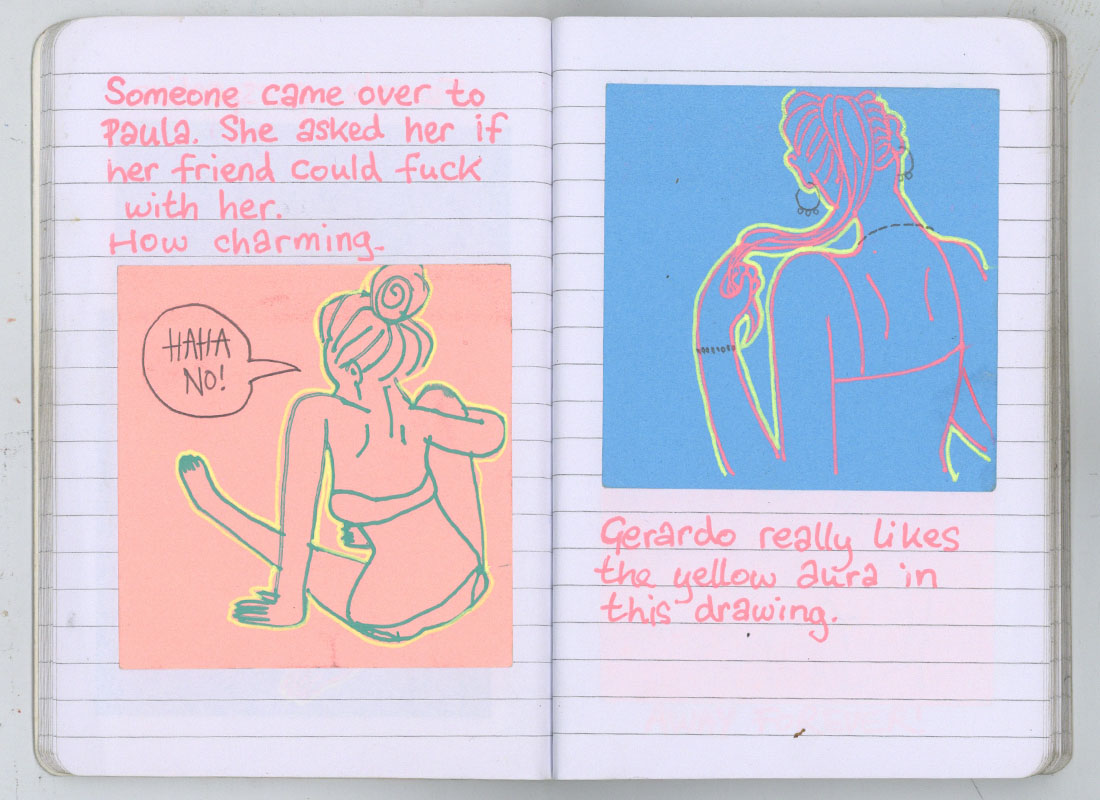 Someone came over to
Paula. She asked her if
her friend could fuck
with her.
How charming.
HAHA
NO!
Gerardo really likes
the yellow aura in
this drawing.